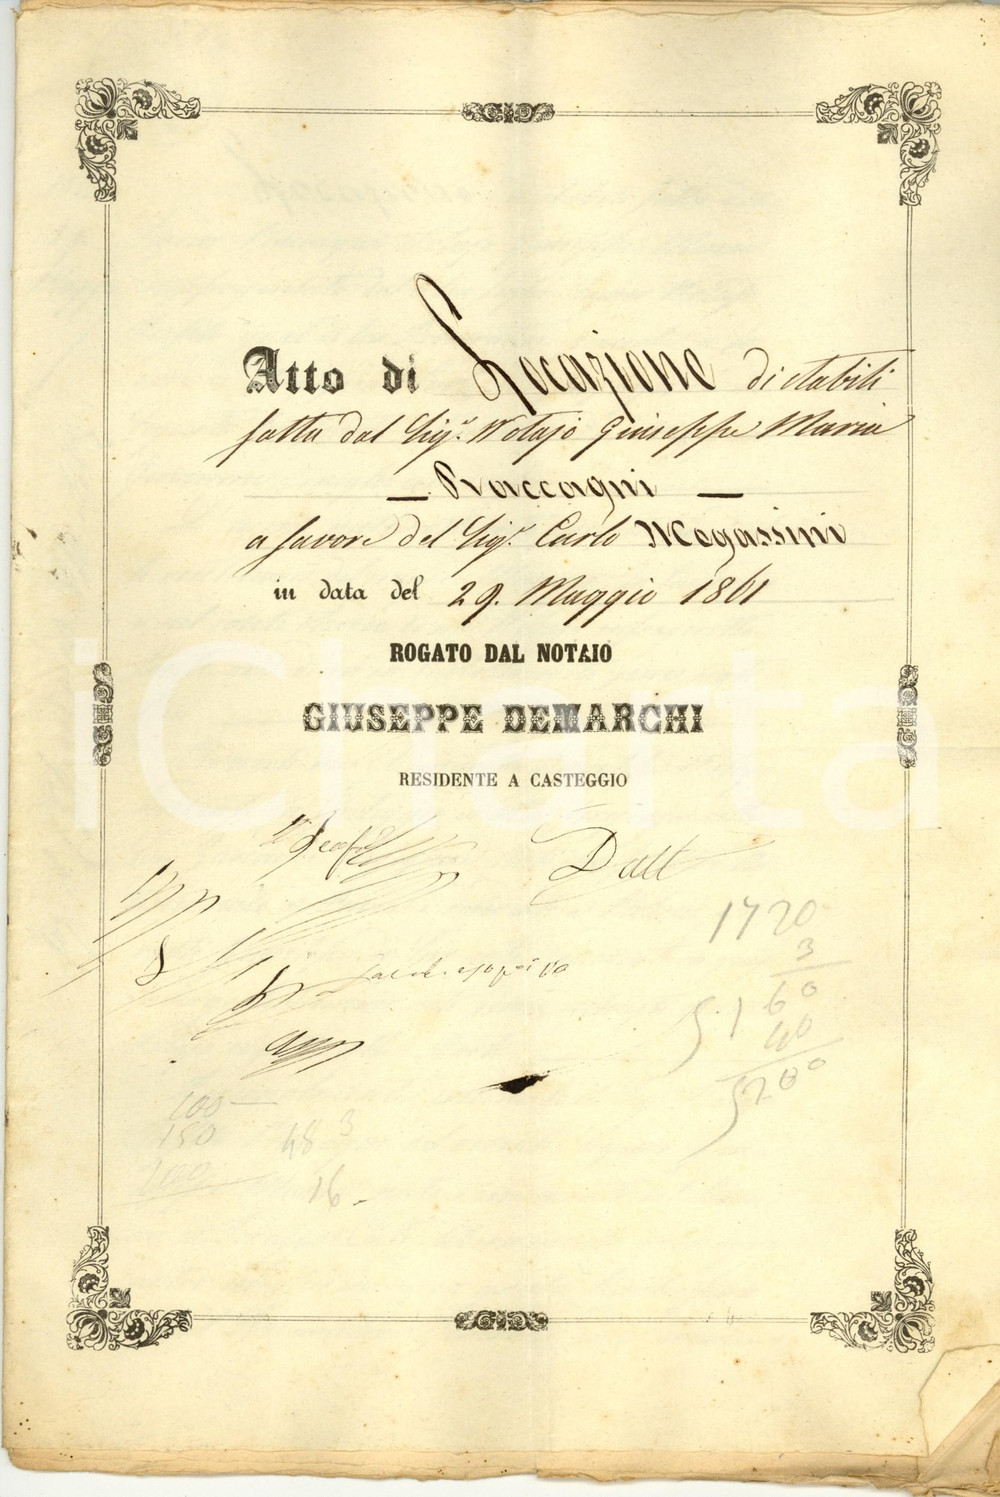 Atto di Locazione di stabili
fatta dal Sigr. Notajo Giuseppe Maria
— Raccagni —
a favore del Sigr. Carlo Megassini
in data del 29. Maggio 1861
ROGATO DAL NOTAIO
GIUSEPPE DEMARCHI
RESIDENTE A CASTEGGIO
iCharta
1720
3
5160
40
5200
100 —
150
100
48 3
16 -